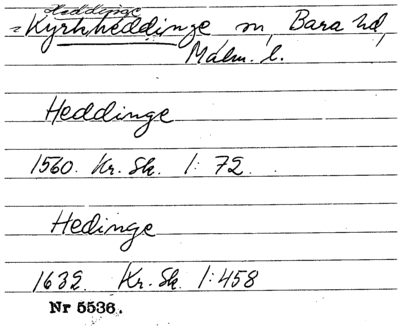 Heddinge
= Kyrkheddinge sn, Bara hd,
Malm. l.
Heddinge
1560. Kr. Sk. 1: 72.
Hedinge
1632. Kr. Sk. 1:458
Nr 5536.